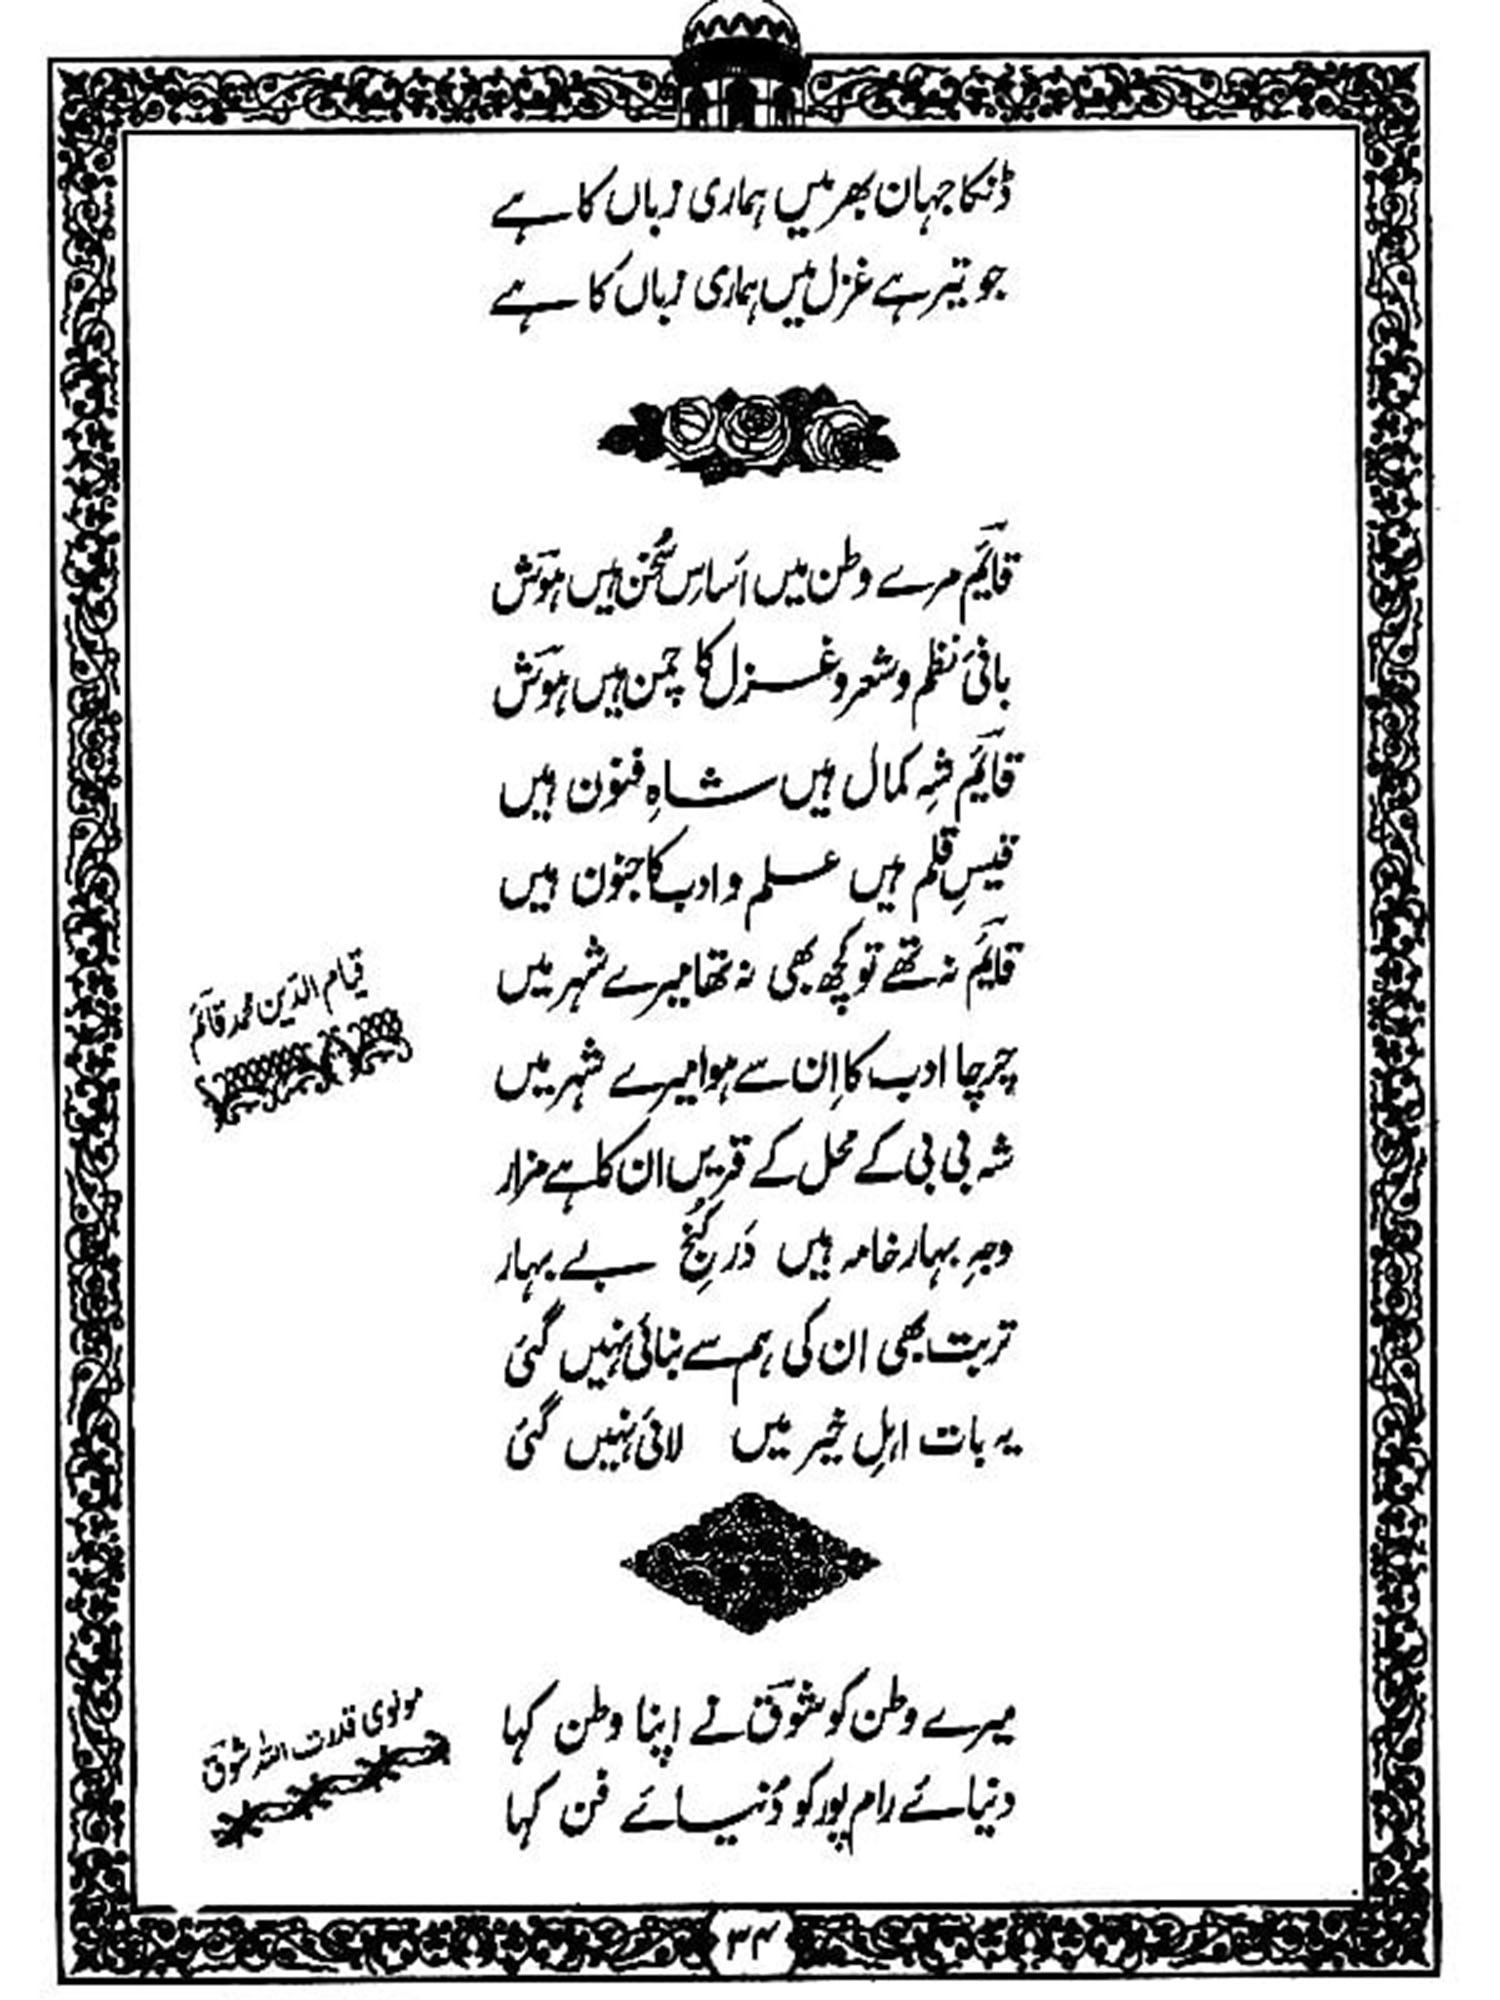 ڈنکا جہان بھر میں ہماری زباں کا ہے
جو تیر ہے غزل میں ہماری زباں کا ہے
قایمؔ مرے وطن میں اَساسِ سُخن ہیں ہوشؔ
بانیٔ نظم و شعر و غزل کا چمن ہیں ہوشؔ
قایمؔ شہِ کمال ہیں شاہِ فنون ہیں
قیسِ قلم ہیں علم و ادب کا جنون ہیں
قایمؔ نہ تھے تو کچھ بھی نہ تھا میرے شہر میں
چرچا ادب کا اِن سے ہوا میرے شہر میں
قیام الدّین محمد قائمؔ
شہ بی بی کے محل کے قریں ان کا ہے مزار
وجہِ بہار خامہ ہیں دَر کُنجِ بے بہار
تربت بھی ان کی ہم سے بنائی نہیں گئی
یہ بات اہلِ خیر میں لائی نہیں گئی
میرے وطن کو شوقؔ نے اپنا وطن کہا
دنیائے رام پور کو دُنیائے فن کہا
مولوی قدرت اللہ شوقؔ
۳۴